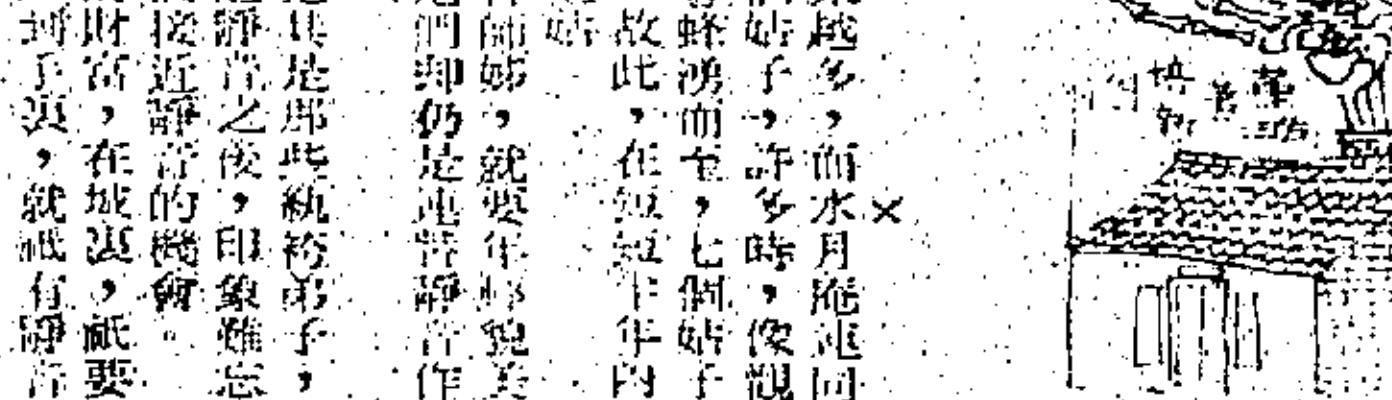 越多，而水月庵連同
姑子，許多時，像觀
蜂湧而至，七個姑子
故此，在短短半年內
姑
師姊，就要年輕貌美
們却仍是連替靜音作
其是那些紈袴弟子，
靜音之後，印象難忘
接近靜音的機會。
財富，在城裏，祇要
到手裏，就祇有靜音